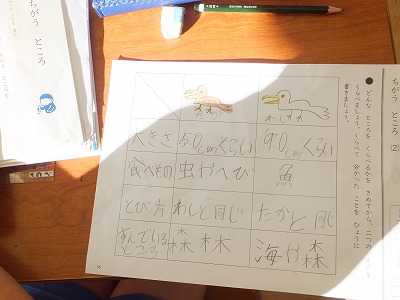 ちがう ところ
ちがう ところ (2)
● どんな ところを くらべるかを きめてから、二つの
くらべましょう。くらべて 分かった ことを ひょうに
書きましょう。
たか
わし
大きさ
cmくらい
cmくらい
食べもの
虫やへび
魚
とび方
わしと同じ
たかと同じ
すんでいる
ところ
森林
海や森